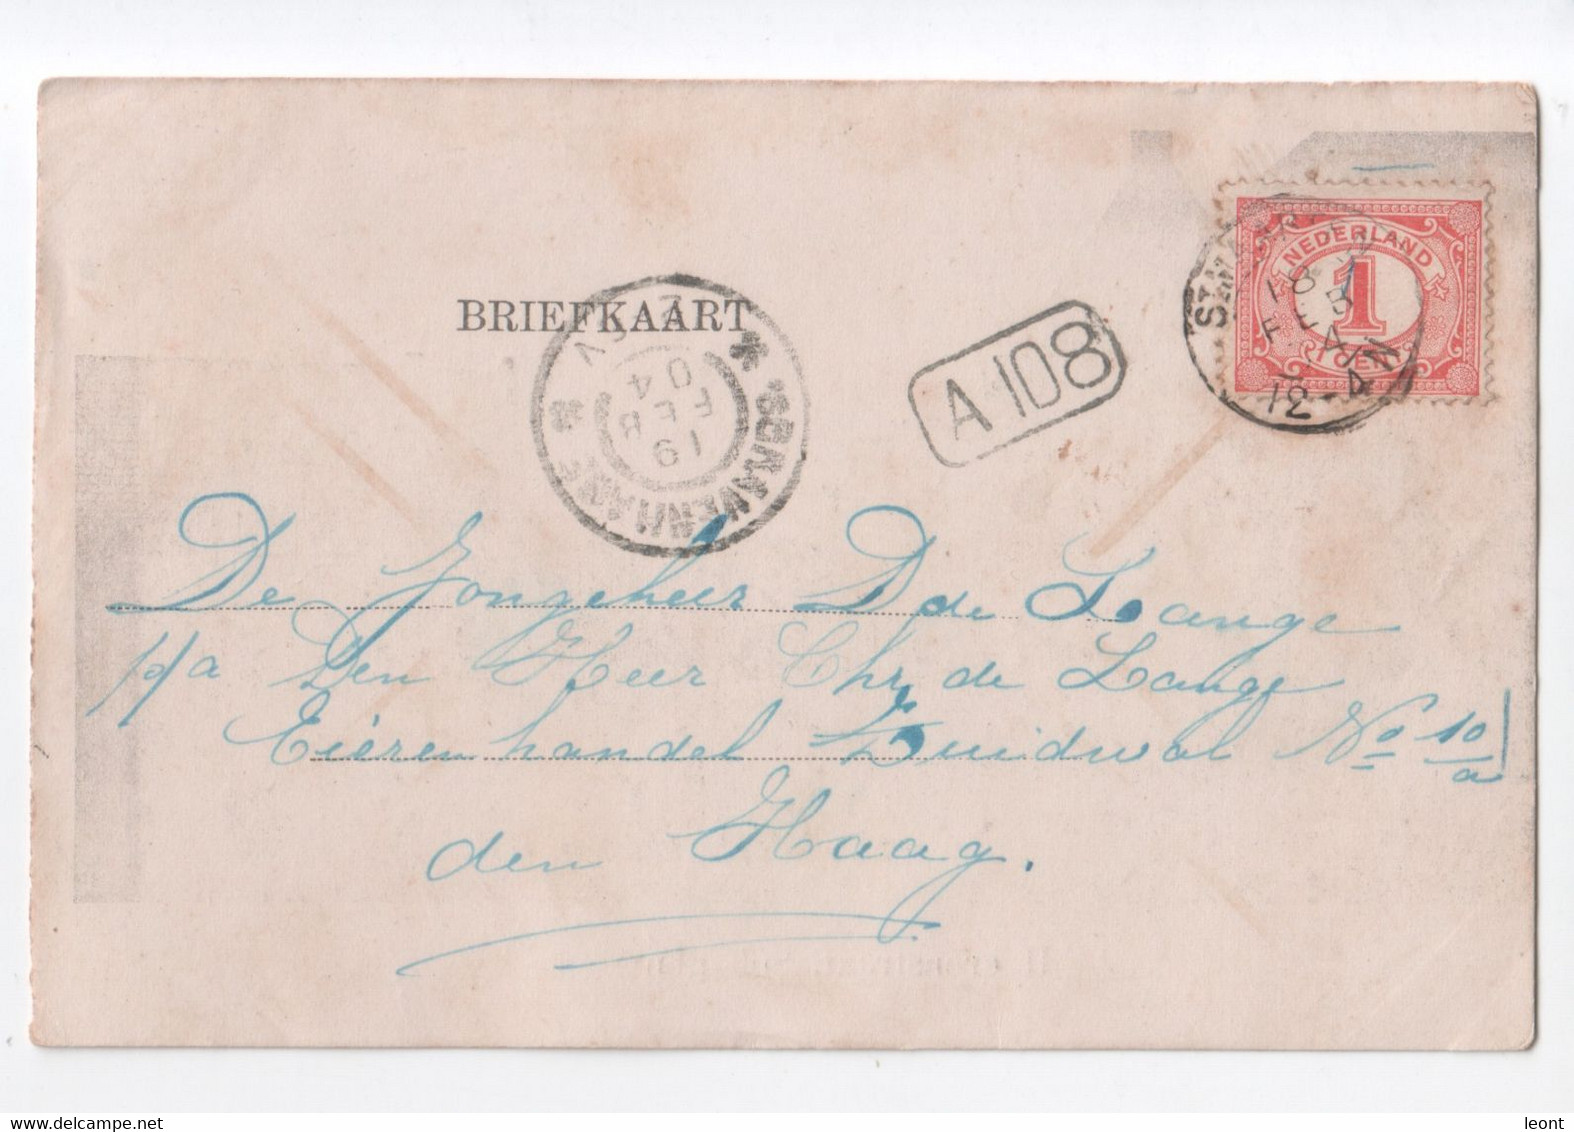 BRIEFKAART
NEDERLAND
1
CENT
18
FEB
4
12-4N
'SGRAVENHAGE
19
FEB
04
A 108
De Jongeheer D de Lange
p/a Den Heer Chr. de Lange
Eierenhandel Zuidwal No 10/a
den Haag.
leont